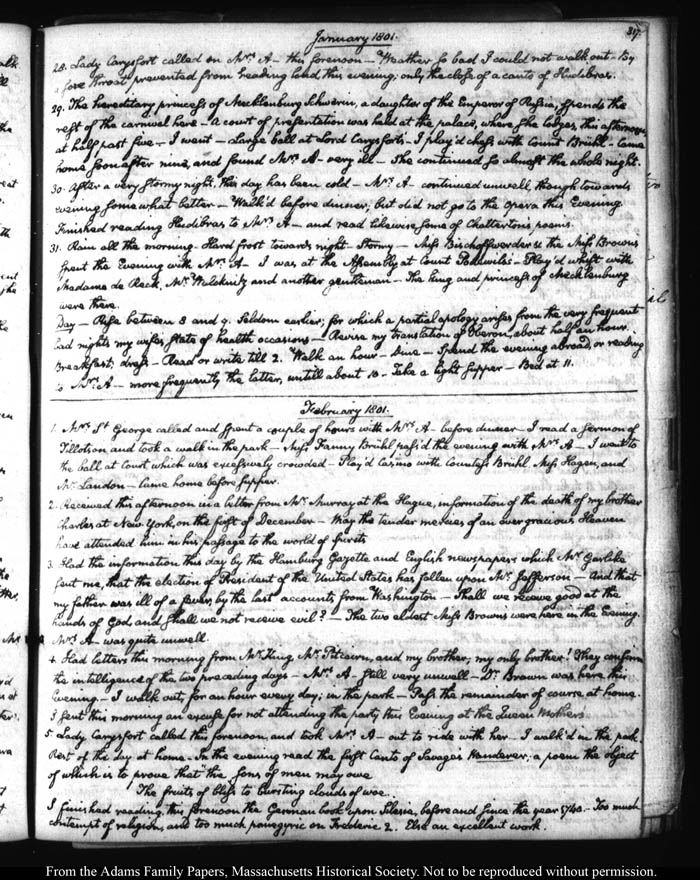 317.
January 1801.
28. Lady Carysfort called on Mrs A— this forenoon— Weather so bad I could not walk out— By
a sore throat prevented from reading loud this evening; only the close of a canto of Hudibras.
29. The hereditary princess of Mecklenburg Schwerin, a daughter of the Emperor of Russia, spends the
rest of the carnival here— A court of presentation was held at the palace, where she lodges, this afternoon,
at half past five— I went— Large ball at Lord Carysfort's— I play'd chess with Count Brühl— Came
home soon after nine, and found Mrs A— very ill— She continued so almost the whole night.
30. After a very stormy night, this day has been cold— Mrs A— continued unwell though towards
evening somewhat better— Walk'd before dinner; but did not go to the opera this Evening.
Finished reading Hudibras to Mrs A— and read likewise some of Chatterton's poems.
31. Rain all the morning. Hard frost towards night. Stormy— Miss Bischoffwerder & the Miss Browns
spent the Evening with Mrs A— I was at the Assembly at Count— Play'd whist with
Madame de Reck, Mr and another gentleman— The king and princess of Mecklenburg
were there.
Day— Rise between 8 and 9. Seldom earlier; for which a partial apology arises from the very frequent
bad nights my wife's state of health occasions— Revise my translation of Oberon, about half an hour.
Breakfast; dress— Read or write till 2. Walk an hour— Dine— Spend the evening abroad, or reading
to Mrs A— more frequently the latter, untill about 10— Take a light supper— Bed at 11.
February 1801.
1. Mrs St George called and spent a couple of hours with Mrs A— before dinner— I read a sermon of
Tillotson and took a walk in the park— Miss Fanny Brühl pass'd the evening with Mrs A— I went to
the ball at Court which was excessively crowded— Play'd casino with Countess Brühl, Miss Hagen, and
Mr Landon— Came home before supper.
2. Received this afternoon in a letter from Mr Murray at the Hague, information of the death of my brother
Charles at New York, on the first of December— May the tender mercies of an ever gracious Heaven
have attended him in his passage to the world of spirits.
3. Had the information this day by the Hamburg Gazette and English newspapers which Mr Garlike
sent me, that the election of President of the United States has fallen upon Mr Jefferson— And that
my father was ill of a fever, by the last accounts from Washington— Shall we receive good at the
hands of God, and shall we not receive evil?— The two eldest Miss Browns were here in the Evening.
Mrs A— was quite unwell.
4. Had letters this morning from Mr King, Mr Pitcairn, and my brother; my only brother! They confirm
the intelligence of the two preceding days— Mrs A— still very unwell— Dr Brown was here this
Evening— I walk out, for an hour every day; in the park— Pass the remainder of course at home.
I sent this morning an excuse for not attending the party this Evening at the Queen Mother's
5. Lady Carysfort called this forenoon, and took Mrs A— out to ride with her— I walk'd in the park.
Rest of the day at home— In the evening read the first Canto of Savage's Wanderer; a poem the object
of which is to prove that the sons of men may owe
The fruits of bliss to bursting clouds of woe..
I finished reading, this forenoon the German book upon Silesia, before and since the year 1740. Too much
contempt of religion, and too much panegyric on Frederic 2. Else an excellent work.
From the Adams Family Papers, Massachusetts Historical Society. Not to be reproduced without permission.